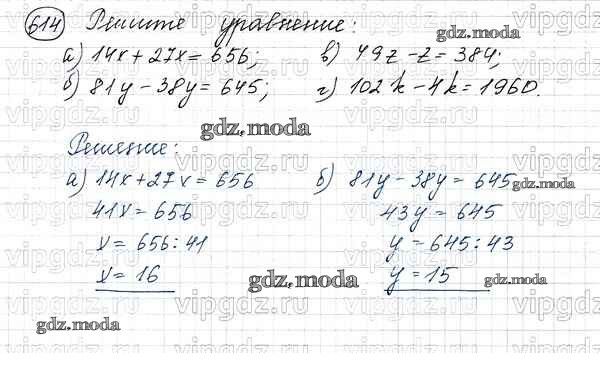 614 Решите уравнение:
а) 14x + 27x = 656; в) 49z - z = 384;
б) 81y - 38y = 645; г) 102k - 4k = 1960.
Решение:
а) 14x + 27x = 656 б) 81y - 38y = 645
41x = 656 43y = 645
x = 656 : 41 y = 645 : 43
x = 16 y = 15
gdz.moda
gdz.moda
gdz.moda
gdz.moda
gdz.moda
gdz.moda
vipgdz.ru